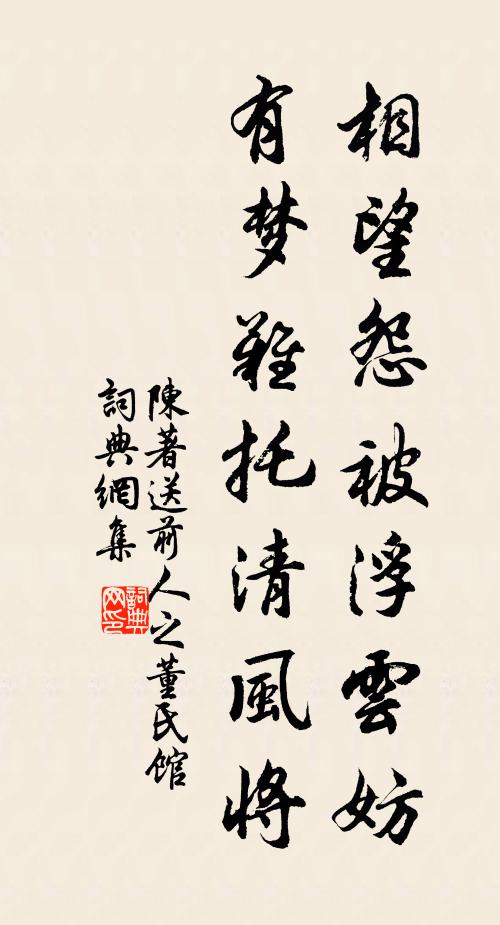 相望怨被浮雲妨
有梦難托清風將
陳著送前人之董民館
詞典網集
詞典网印